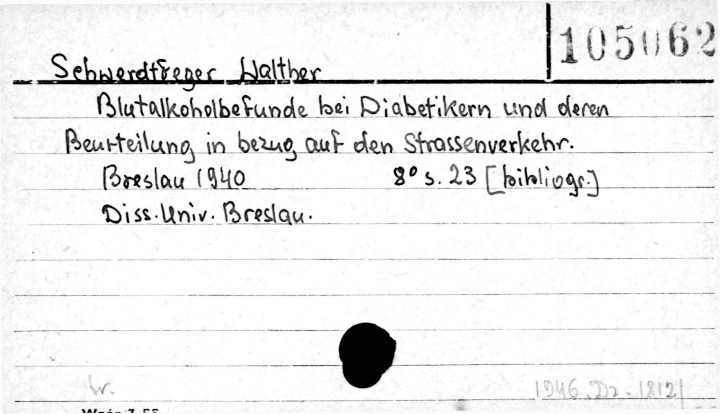 105062
Schwerdtfeger Walther
Blutalkoholbefunde bei Diabetikern und deren
Beurteilung in bezug auf den Strassenverkehr.
Breslau 1940 8° s. 23 [bibliogr.]
Diss. Univ. Breslau.
1946.Dz.1812